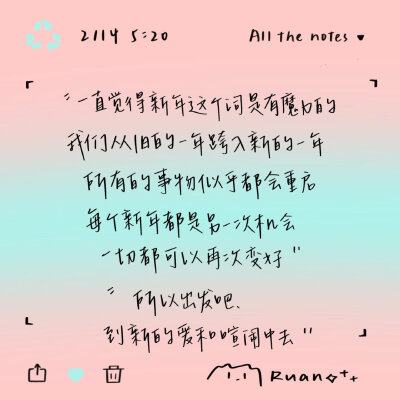 2114 5:20
All the notes
"一直觉得新年这个词是有魔力的
我们从旧的一年跨入新的一年
所有的事物似乎都会重启
每个新年都是另一次机会
一切都可以再次变好"
"所以出发吧、
到新的爱和喧闹中去"
Ruan